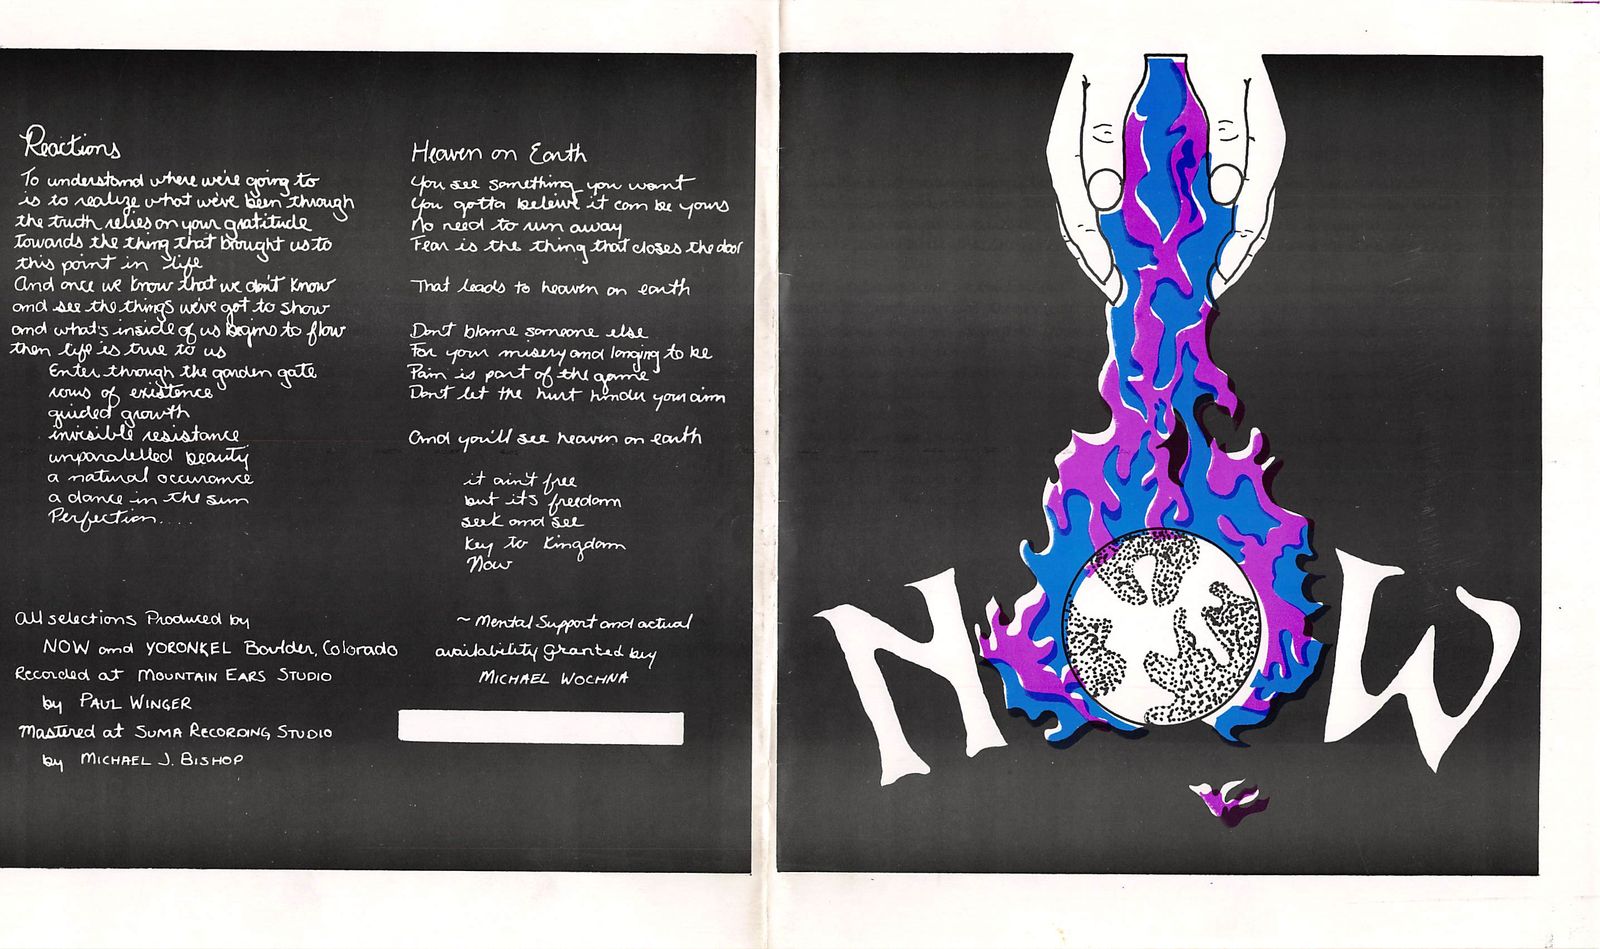 Reactions
To understand where we're going to
is to realize what we've been through
the truth relies on your gratitude
towards the thing that brought us to
this point in life
And once we know that we don't know
and see the things we've got to show
and what's inside of us begins to flow
then life is true to us
Enter through the garden gate
rows of existence
guided growth
invisible resistance
unparalelled beauty
a natural occurance
a dance in the sun
Perfection....
All selections Produced by
NOW and YORONKEL Boulder, Colorado
Recorded at MOUNTAIN EARS STUDIO
by PAUL WINGER
Mastered at SUMA RECORDING STUDIO
by MICHAEL J. BISHOP
Heaven on Earth
You see something you want
You gotta beleive it can be yours
No need to run away
Fear is the thing that closes the door
That leads to heaven on earth
Don't blame someone else
For your misery and longing to be
Pain is part of the game
Don't let the hurt hinder your aim
And you'll see heaven on earth
it ain't free
but it's freedom
seek and see
Key to Kingdom
Now
~ Mental Support and actual
availability granted by
MICHAEL WOCHNA
NOW